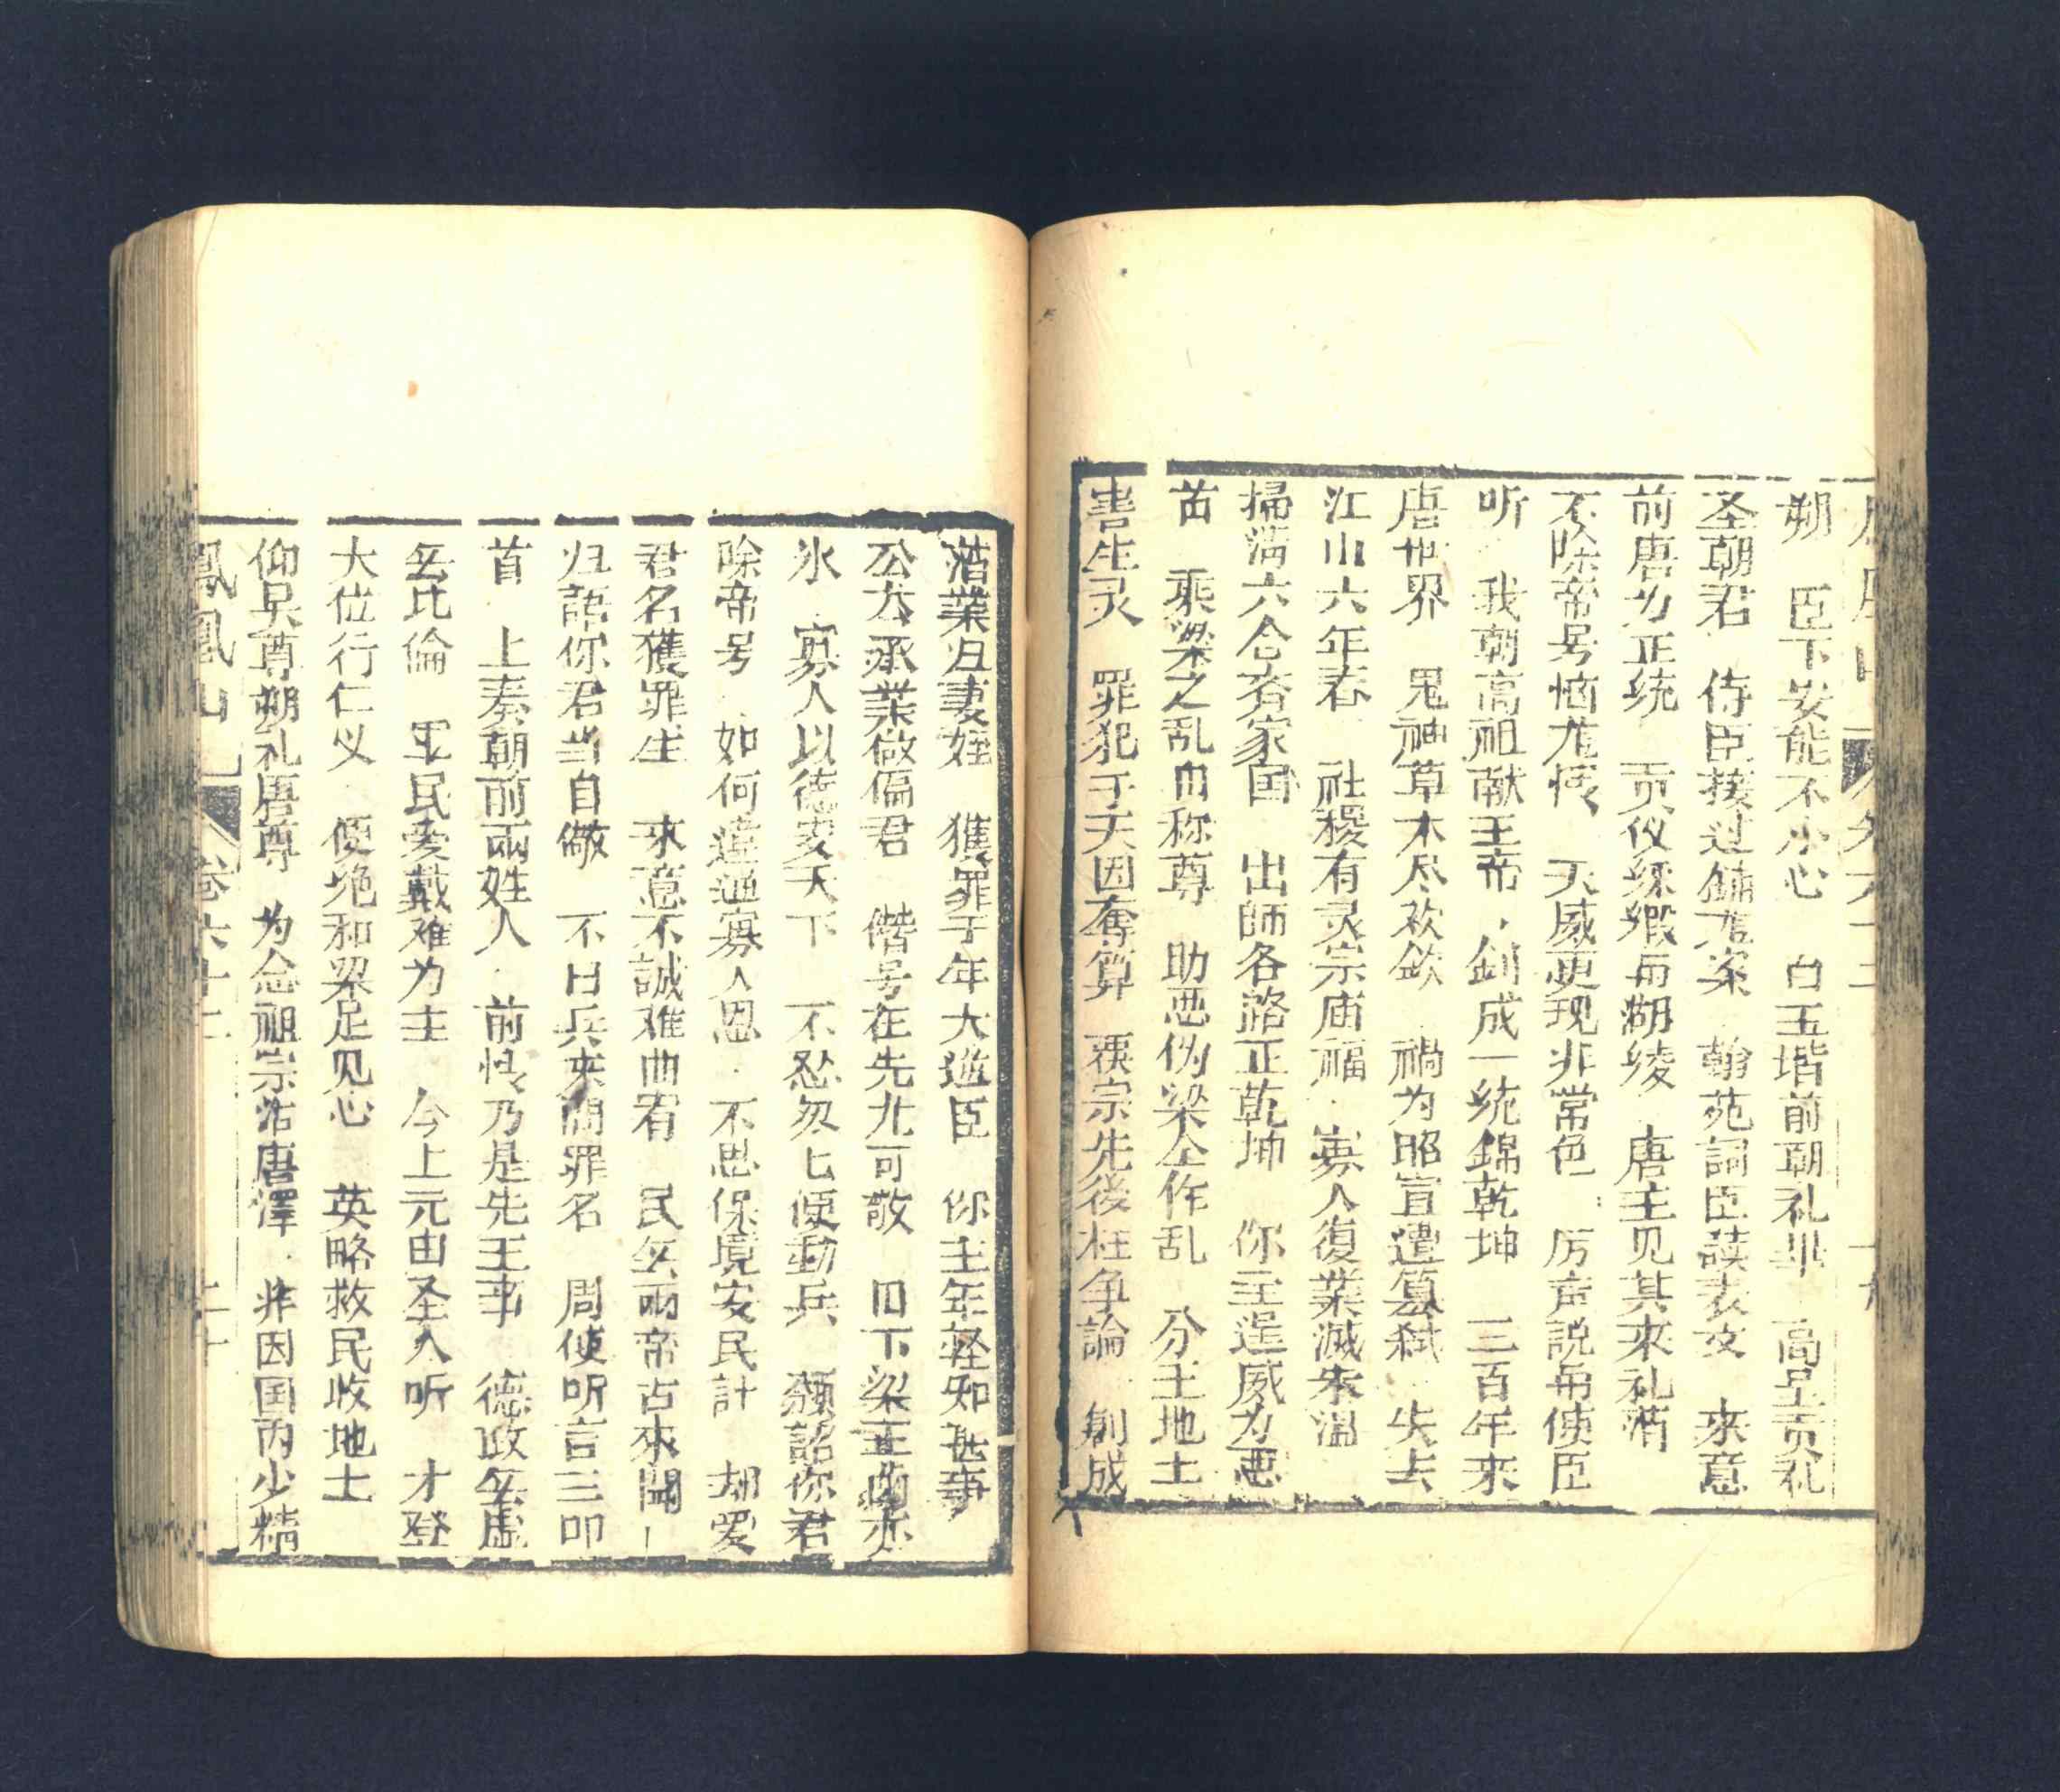 朔　臣下安能不小心　白玉堦前朝礼毕　高呈贡礼
圣朝君　侍臣接过鋪龙案　翰苑詞臣読表文　來意
前唐为正统　贡仪綵緞与湖绫　唐主见其來礼薄
不除帝号恼龙怀　天威更现非常色　厉声説与使臣
听　我朝高祖献王帝　創成一统錦乾坤　三百年來
唐世界　鬼神草木尽欢欽　禍为昭宣遭篡弑　失去
江山六年春　社稷有灵宗庙福　寡人復業滅朱温
掃清六合斉家国　出師各路正乾坤　你主逞威为恶
苗　乘梁之乱自称尊　助恶伪梁仝作乱　分王地土
害生灵　罪犯于天因奪算　覆宗先後枉争論　創成
活業归妻姪　獲罪于年大逆臣　你主年輕知甚事
公大承業做偏君　僭号在先尤可敬　旧下梁主亦
氷　寡人以德安天下　不忍匆匕便動兵　頒詔你君
除帝号　如何違逆寡人恩　不思保境安民計　却爱
君名獲罪生　來意不誠难曲宥　民无兩帝古來聞
归語你君当自儆　不日兵來問罪名　周使听言三叩
首　上奏朝前兩姓人　前怀乃是先王事　德政无虚
无比倫　军民爱戴难为主　今上元由圣人听　才登
大位行仁义　便绝和梁足见心　英略救民收地土
仰吴尊朔礼唐尊　为念祖宗沾唐澤　非因国内少精
鳳凰山　卷六十二　二十